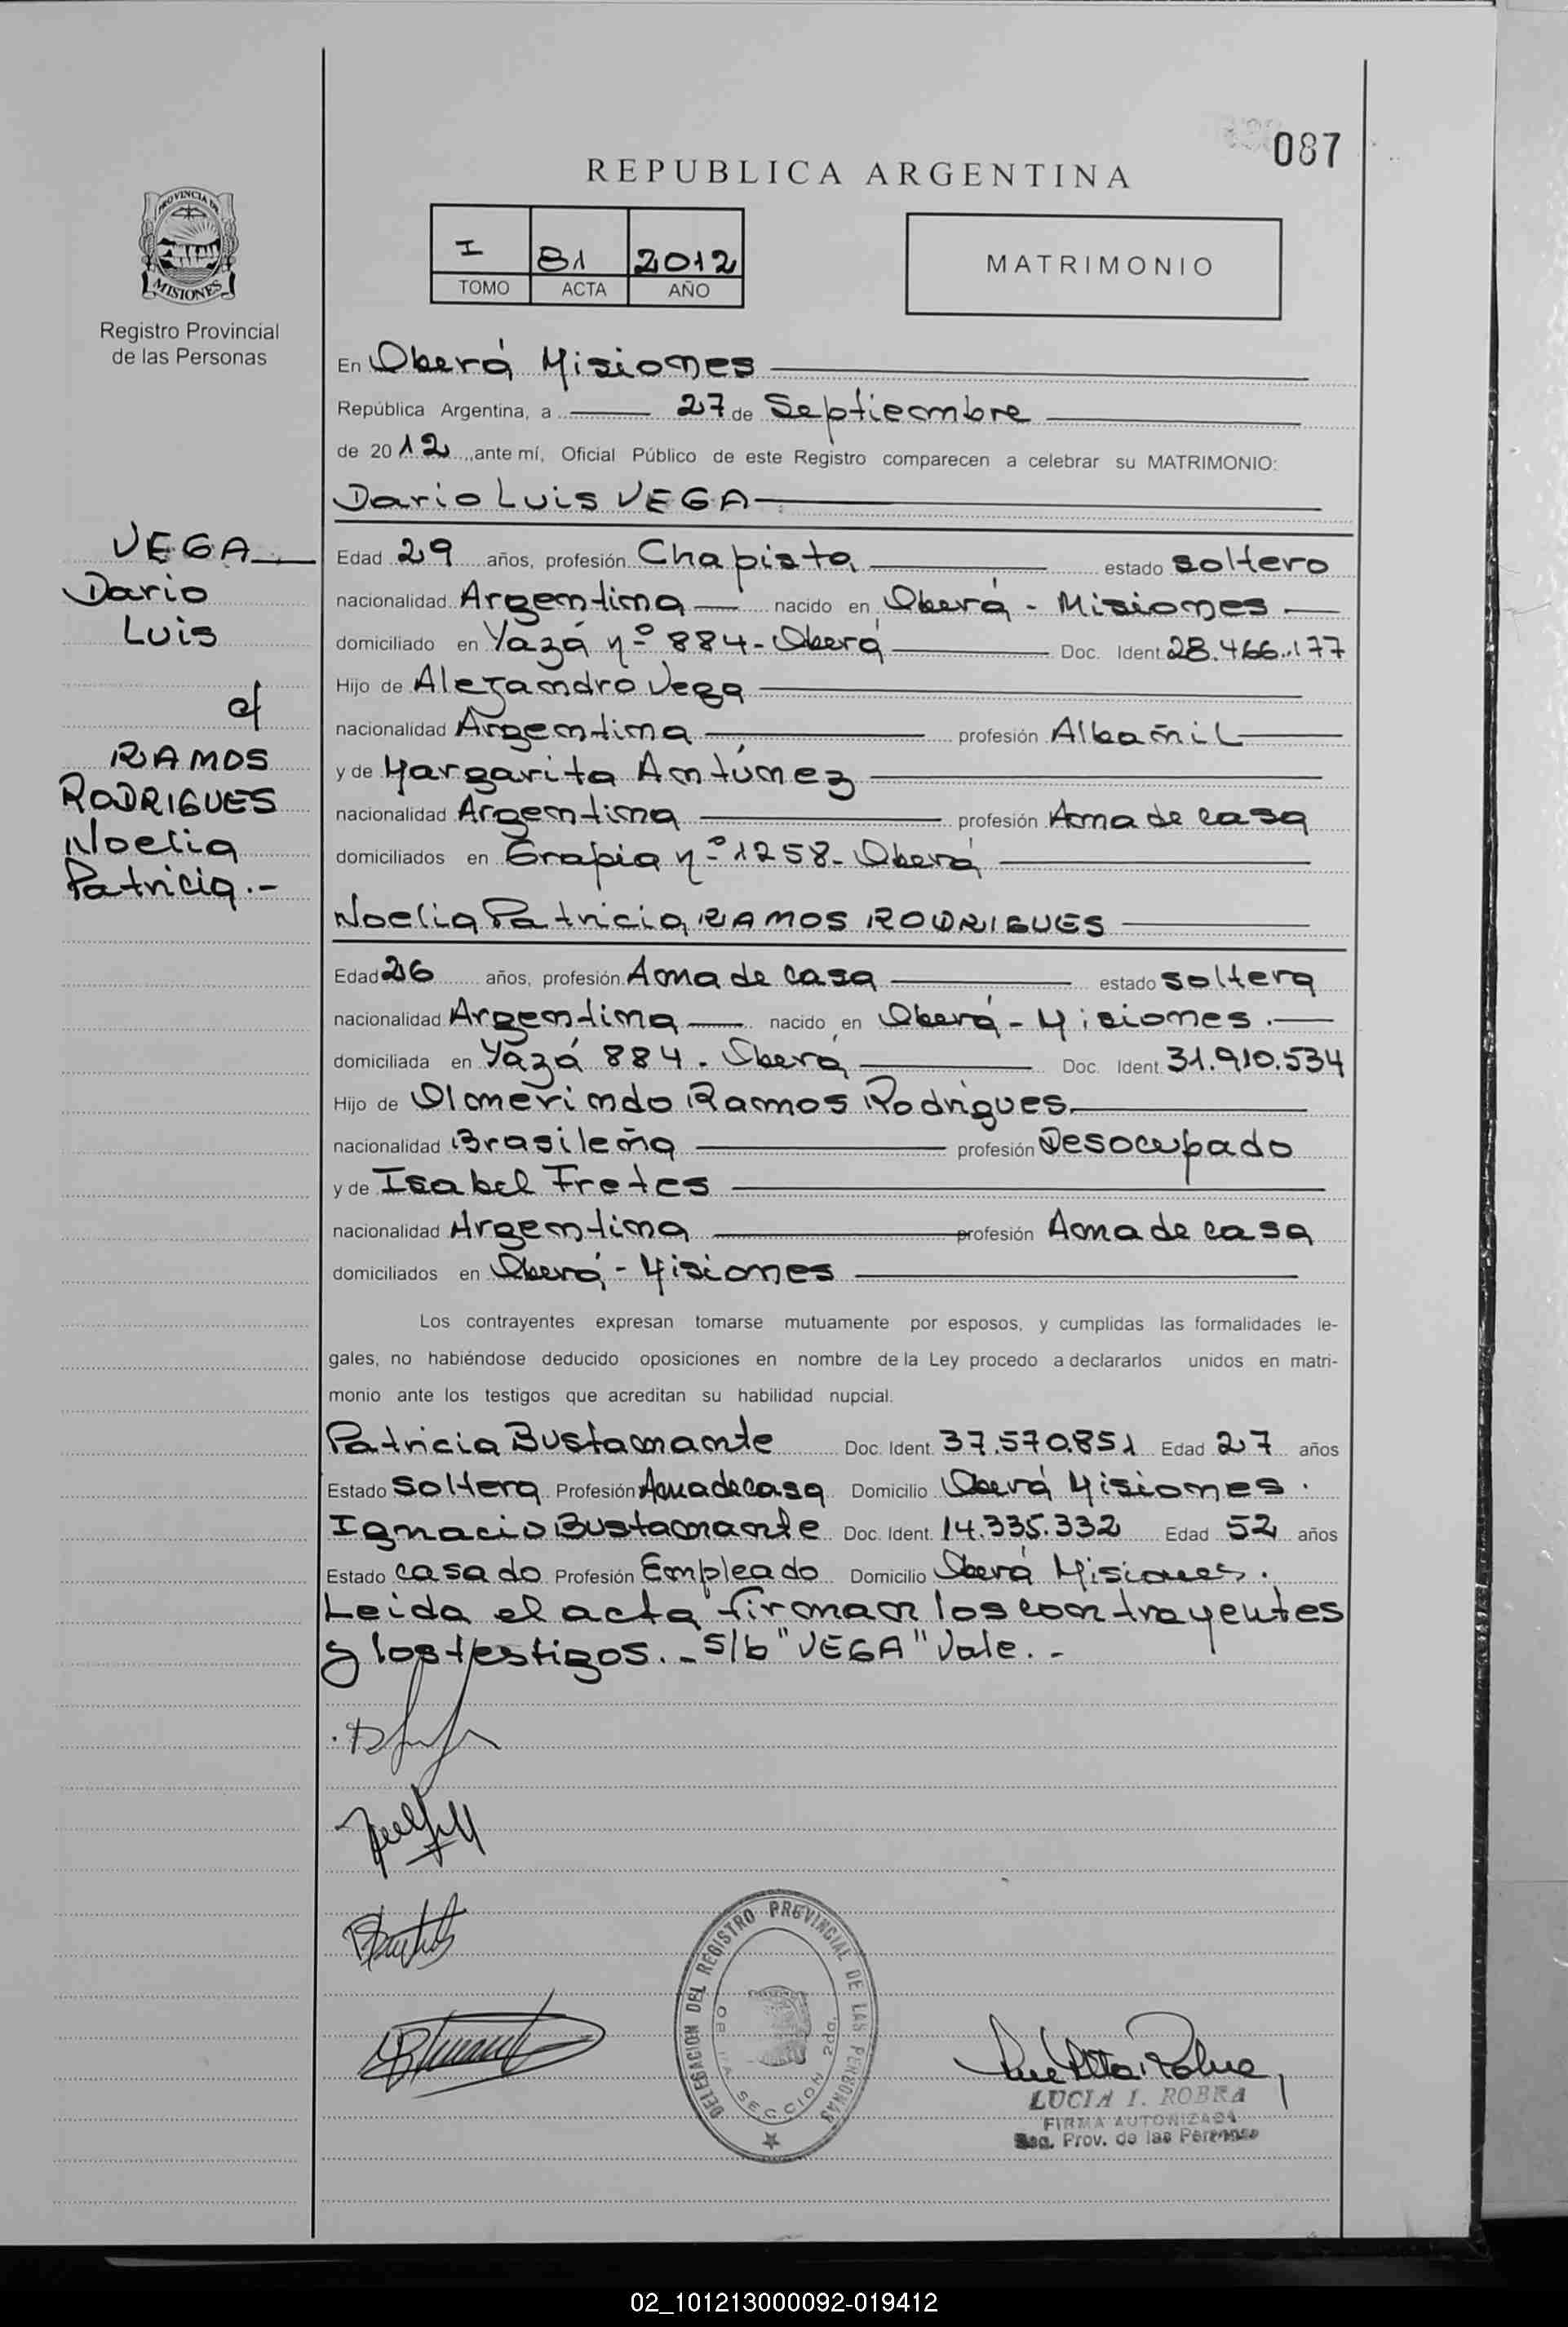 087
REPUBLICA ARGENTINA
PROVINCIA DE
MISIONES
I 81 2012
TOMO ACTA AÑO
MATRIMONIO
Registro Provincial
de las Personas
En Oberá Misiones
República Argentina, a 27 de Septiembre
de 2012, ante mí, Oficial Público de este Registro comparecen a celebrar su MATRIMONIO:
Dario Luis VEGA
VEGA
Dario
Luis
c/
RAMOS
RODRIGUES
Noelia
Patricia.-
Edad 29 años, profesión Chapista estado soltero
nacionalidad Argentina nacido en Oberá - Misiones
domiciliado en Yazá nº 884 - Oberá Doc. Ident. 28.466.177
Hijo de Alejandro Vega
nacionalidad Argentina profesión Albañil
y de Margarita Antúnez
nacionalidad Argentina profesión Ama de casa
domiciliados en Grapia nº 1258 - Oberá
Noelia Patricia RAMOS RODRIGUES
Edad 26 años, profesión Ama de casa estado soltera
nacionalidad Argentina nacido en Oberá - Misiones.
domiciliada en Yazá 884. Oberá Doc. Ident. 31.910.534
Hijo de Olmerindo Ramos Rodrigues
nacionalidad Brasileña profesión Desocupado
y de Isabel Fretes
nacionalidad Argentina profesión Ama de casa
domiciliados en Oberá - Misiones
Los contrayentes expresan tomarse mutuamente por esposos, y cumplidas las formalidades le-
gales, no habiéndose deducido oposiciones en nombre de la Ley procedo a declararlos unidos en matri-
monio ante los testigos que acreditan su habilidad nupcial.
Patricia Bustamante Doc. Ident. 37.570.851 Edad 27 años
Estado Soltera Profesión Ama de casa Domicilio Oberá Misiones.
Ignacio Bustamante Doc. Ident. 14.335.332 Edad 52 años
Estado casado Profesión Empleado Domicilio Oberá Misiones.
Leida el acta firman los contrayentes
y los testigos.- S/b "VEGA" Vale.-
DELEGACION DEL REGISTRO PROVINCIAL DE LAS PERSONAS
SECCION 2da.
LUCIA I. ROBRA
FIRMA AUTORIZADA
Reg. Prov. de las Personas
02_101213000092-019412